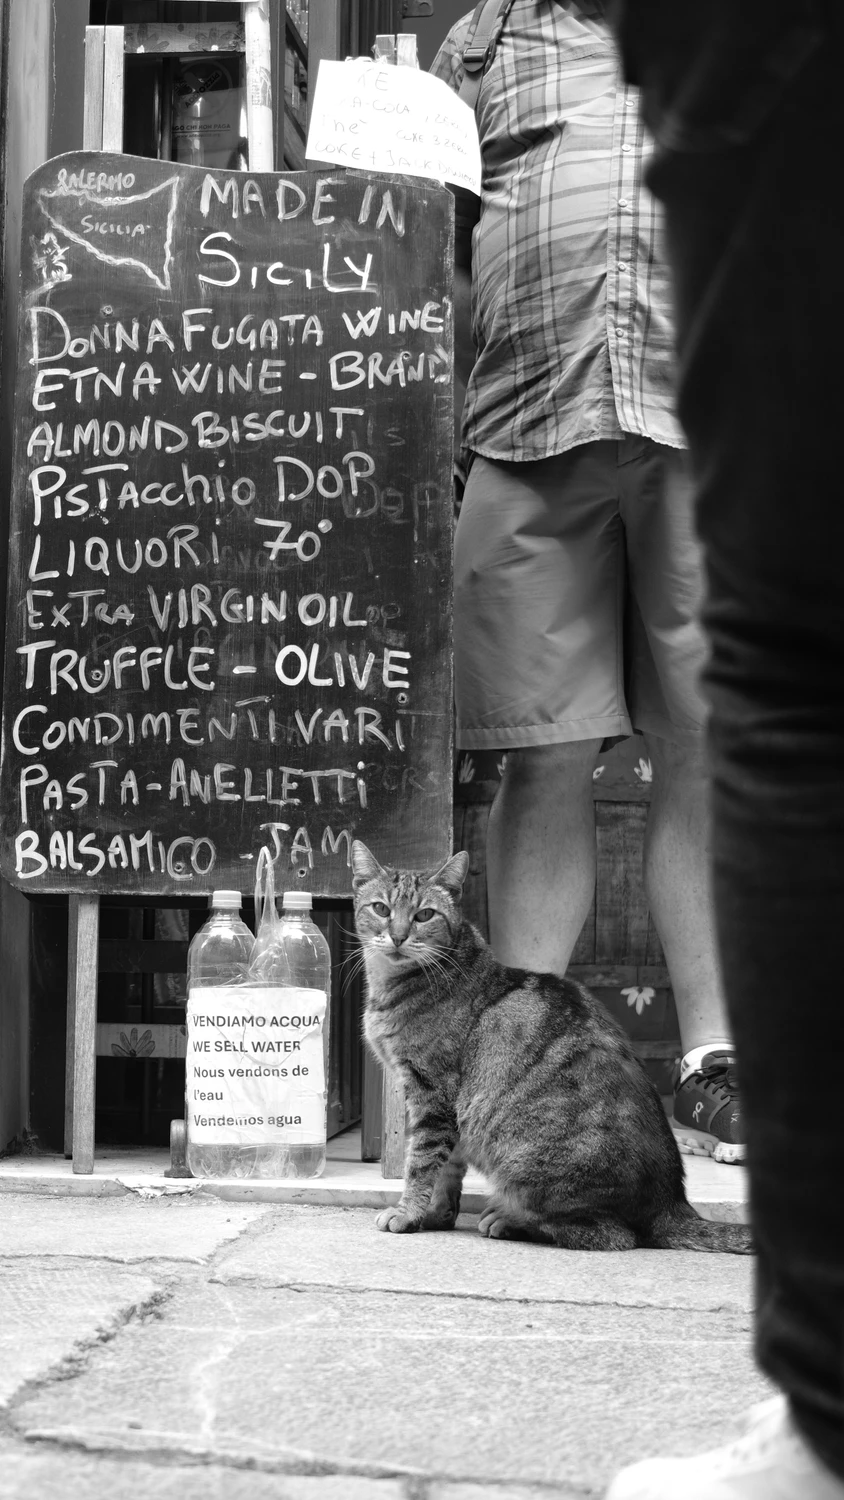 COKE ZERO
COKE + JACK DANIELS
PALERMO
SICILIA
MADE IN
SiciLY
DONNAFUGATA WINE
ETNA WINE - BRANDY
ALMOND BISCUIT
PISTAcchio DOP
LIQUORI 70°
EXTRA VIRGIN OIL
TRUFFLE - OLIVE
CONDIMENTI VARI
PASTA - ANELLETTI
BALSAMICO - JAM
VENDIAMO ACQUA
WE SELL WATER
Nous vendons de
l'eau
Vendemos agua